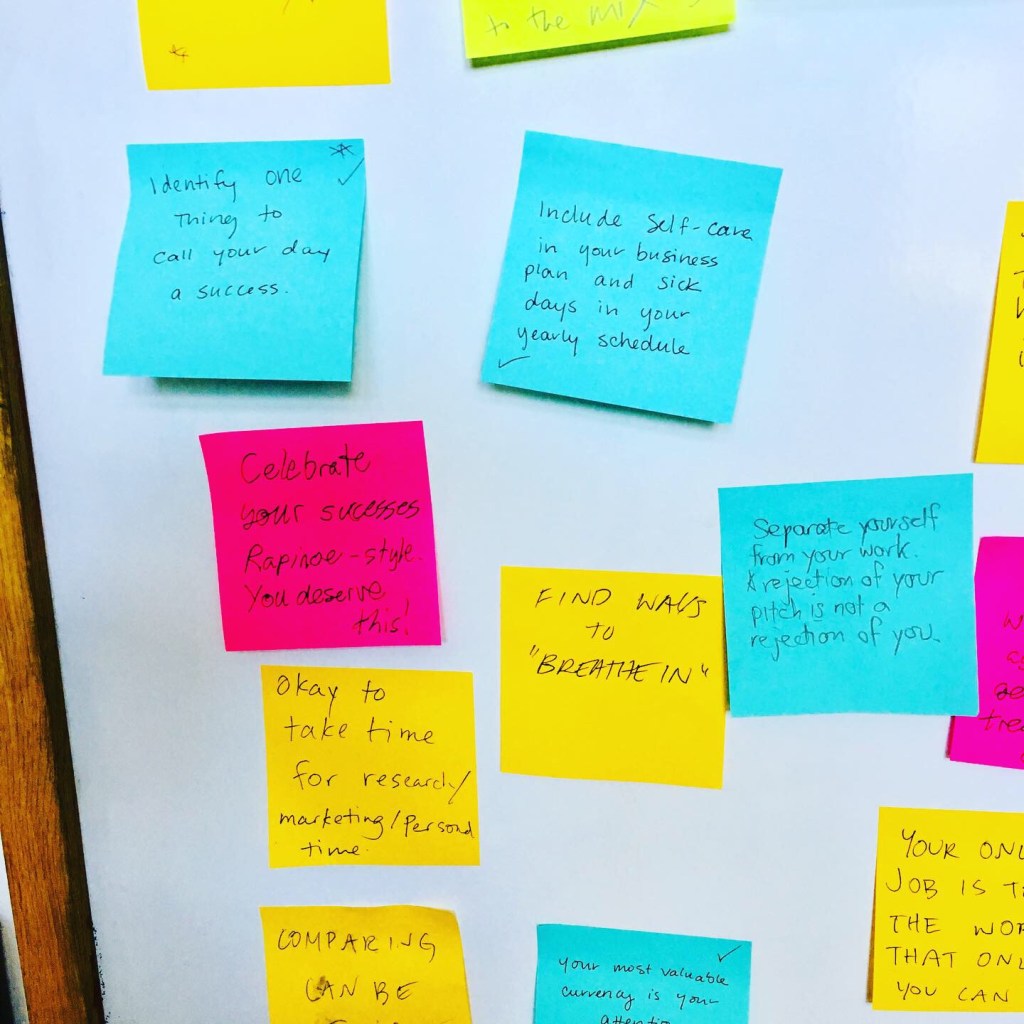 to the MIX
Identify one
Thing to
call your day
a success.
Include self-care
in your business
plan and sick
days in your
yearly schedule
Celebrate
your sucesses
Rapinoe-style.
You deserve
this!
Separate yourself
from your work.
A rejection of your
pitch is not a
rejection of you.
FIND WAYS
TO
"BREATHE IN"
Okay to
take time
for research/
marketing/personal
time.
YOUR ONL
JOB IS
THE WOR
THAT ONL
YOU CAN
COMPARING
CAN BE
Your most valuable
currency is your
attentio